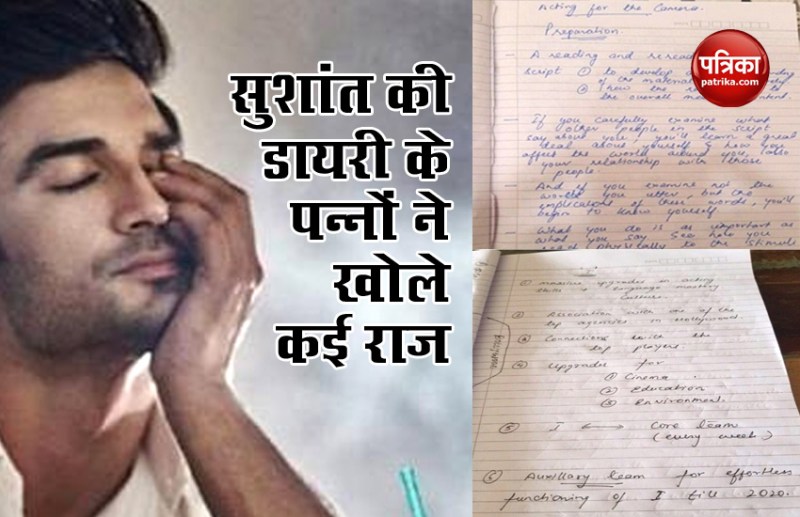 सुशांत की
डायरी के
पन्नों ने
खोले
कई राज
पत्रिका
patrika.com
Acting for the Camera.
Preparation
A reading and
Script ① to develop
of the
② how the
the overall
If you carefully examine what
other people in the script
say about you, you'll learn a great
deal about yourself & how you
affect the world around you, also
your relationship with those
people.
And if you examine not the
words you utter, but the
implications of these words, you'll
begin to know yourself
What you do is as important as
what you say. See how you
react physically to the stimuli
① upgrades in acting
skills & language mastery
culture.
Association with one of the
top agencies in Hollywood.
③ Connections with the
top players.
④ Upgrades for
① Cinema
② Education
③ Environment.
⑤ I ⟷ Core team
(every week)
⑥ Auxillary team for effortless
functioning of I till 2020.